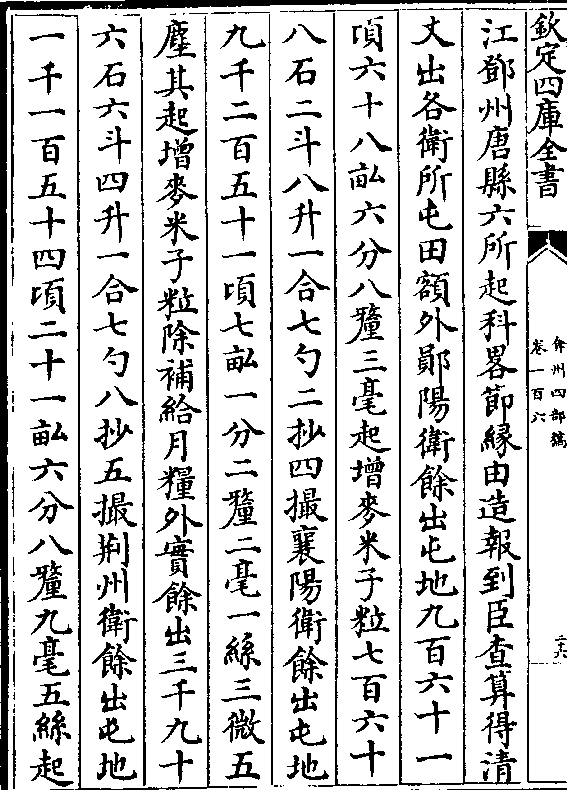 欽定四庫全書
弇州四部稿
卷一百六
江鄧州唐縣六所起科畧節緣由造報到臣查算得清
丈出各衛所屯田額外鄖陽衛餘出屯地九百六十一
頃六十八畝六分八釐三毫起增麥米子粒七百六十
八石二斗八升一合七勺二抄四撮襄陽衛餘出屯地
九千二百五十一頃七畝一分二釐二毫一絲三微五
塵其起增麥米子粒除補給月糧外實餘出三千九十
六石六斗四升一合七勺八抄五撮荆州衛餘出屯地
一千一百五十四頃二十一畝六分八釐九毫五絲起